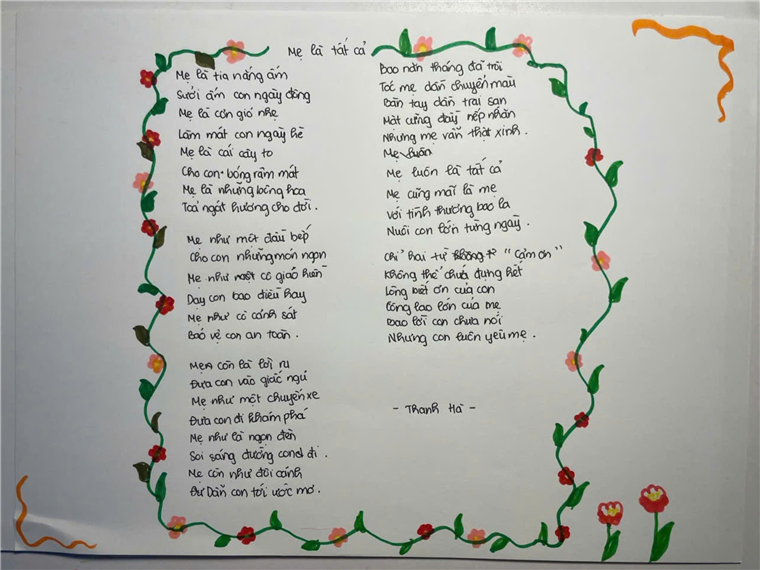 Mẹ là tất cả
Mẹ là tia nắng ấm
Sưởi ấm con ngày đông
Mẹ là cơn gió nhẹ
Làm mát con ngày hè
Mẹ là cái cây to
Cho con bóng râm mát
Mẹ là những bông hoa
Toả ngát hương cho đời.
Mẹ như một đầu bếp
Cho con những món ngon
Mẹ như một cô giáo hiền
Dạy con bao điều hay
Mẹ như cô cảnh sát
Bảo vệ con an toàn.
Mẹ còn là lời ru
Đưa con vào giấc ngủ
Mẹ như một chuyến xe
Đưa con đi khám phá
Mẹ như là ngọn đèn
Soi sáng đường con đi.
Mẹ còn như đôi cánh
Dẫn con tới ước mơ.
Bao năm tháng đã trôi
Tóc mẹ dần chuyển màu
Bàn tay dần trai sạn
Mặt cũng đầy nếp nhăn
Nhưng mẹ vẫn thật xinh.
Mẹ luôn
Mẹ luôn là tất cả
Mẹ cũng mãi là mẹ
Với tình thương bao la
Nuôi con lớn từng ngày.
Chỉ hai từ "Cảm ơn"
Không thể chứa đựng hết
Lòng biết ơn của con
Công lao lớn của mẹ
Bao lời con chưa nói
Nhưng con luôn yêu mẹ.
- Thanh Hà -